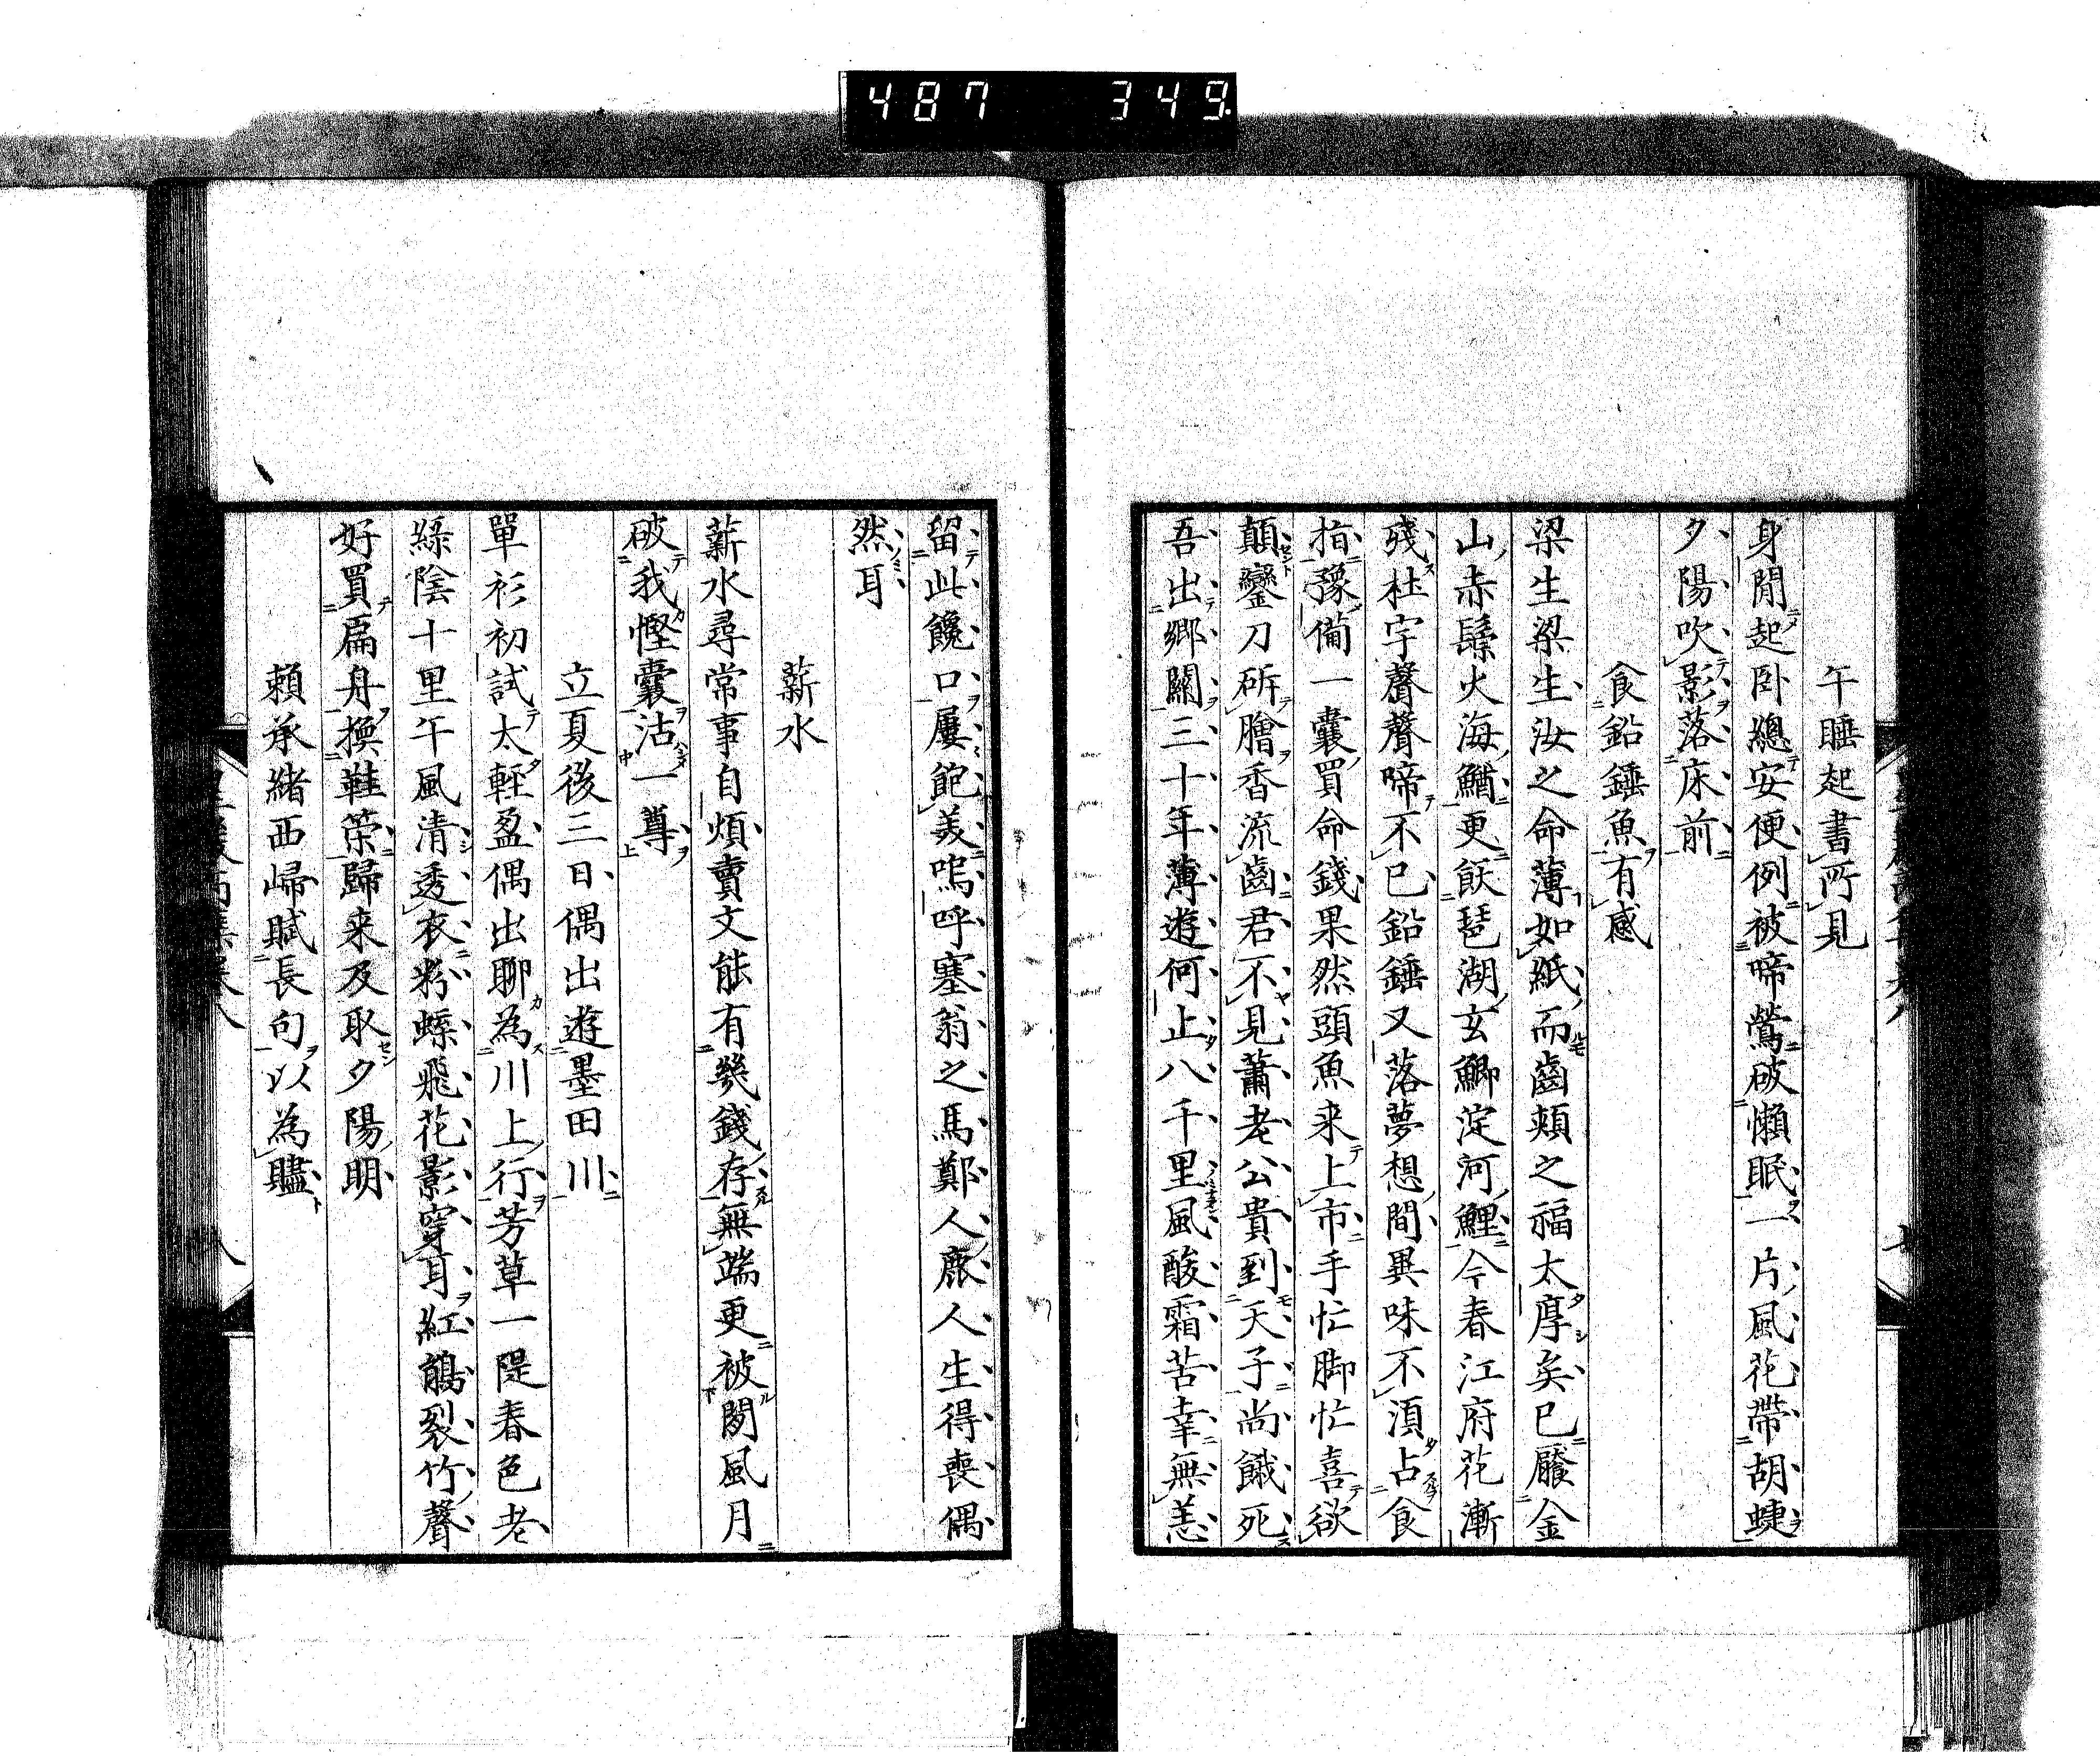 487 349
午睡起書所見
身閒起臥總安便例被啼鶯破懶眠一片風花帶胡蝶
夕陽吹影落床前
食鉛錘魚有感
梁生梁生汝之命薄如紙而齒頰之福太厚矣已饜金
山赤鬃火海鰌更飫琶湖玄鯽淀河鯉今春江府花漸
殘杜宇聲聲啼不已鉛錘又落夢想間異味不須占食
指豫備一囊買命錢果然頭魚来上市手忙脚忙喜欲
顛鑾刀斫膾香流齒君不見蕭老公貴到天子尚餓死
吾出鄉關三十年薄遊何止八千里風酸霜苦幸無恙
留此饞口屢飽美嗚呼塞翁之馬鄭人鹿人生得喪偶
然耳
薪水
薪水尋常事自煩賣文能有幾錢存無端更被閱風月
破我慳囊沽一尊
立夏後三日偶出遊墨田川
單衫初試太輕盈偶出聊為川上行芳草一隄春色老
綠陰十里午風清透衣粉蝶飛花影穿耳紅鵑裂竹聲
好買扁舟換鞋䇲歸来及取夕陽明
賴承緒西歸賦長句以為贐